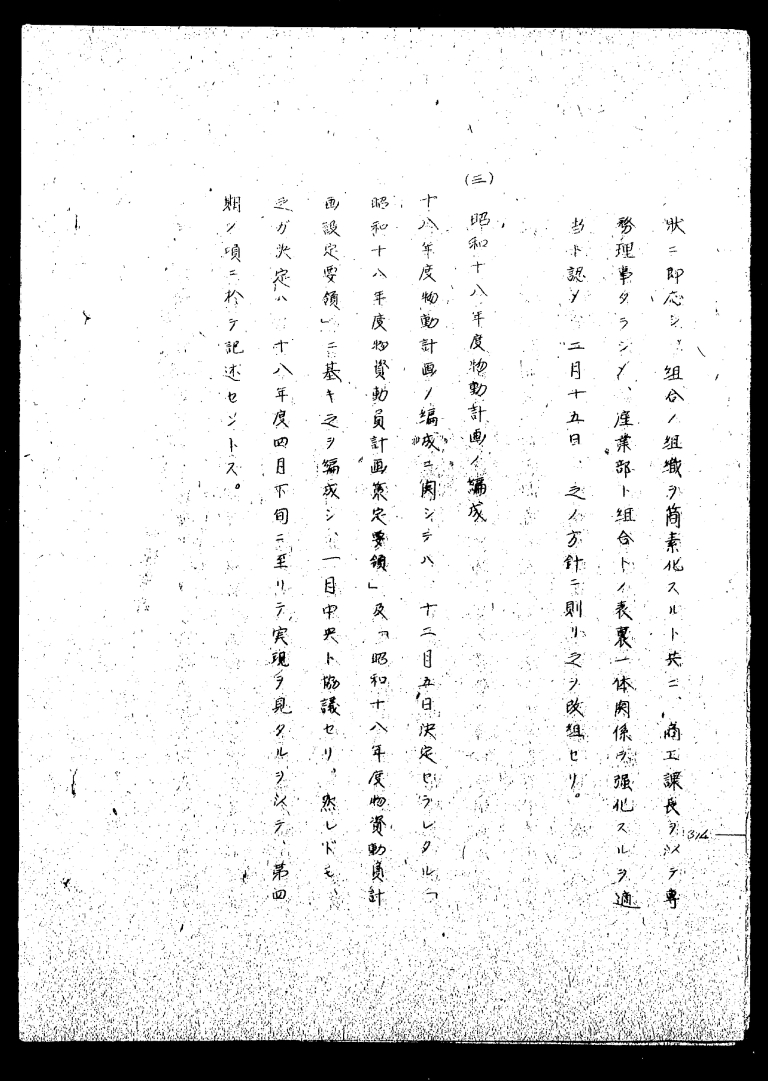 状ニ即応シ、組合ノ組織ヲ簡素化スルト共ニ、商工課長ヲシテ専
務理事タラシメ、産業部ト組合トノ表裏一体関係ヲ強化スルヲ適
当ト認メ、二月十五日、之ノ方針ニ則リ之ヲ改組セリ。
(三) 昭和十八年度物動計画ノ編成
十八年度物動計画ノ編成ニ関シテハ、十二月五日決定セラレタル「
昭和十八年度物資動員計画策定要領」及「昭和十八年度物資動員計
画設定要領」ニ基キ之ヲ編成シ、一月中央ト協議セリ。然レドモ、
之ガ決定ハ、十八年度四月下旬ニ至リテ実現ヲ見タルヲ以テ、第四
期ノ項ニ於テ記述セントス。
314